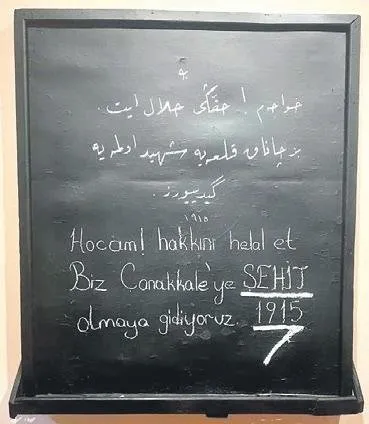 خواجم ! حقڭی حلال ایت.
بز چاناق قلعه یه شهید اولمه یه
گیدییورز.
١٩١٥
Hocam! hakkını helal et
Biz Çanakkale'ye ŞEHİT
olmaya gidiyoruz. 1915